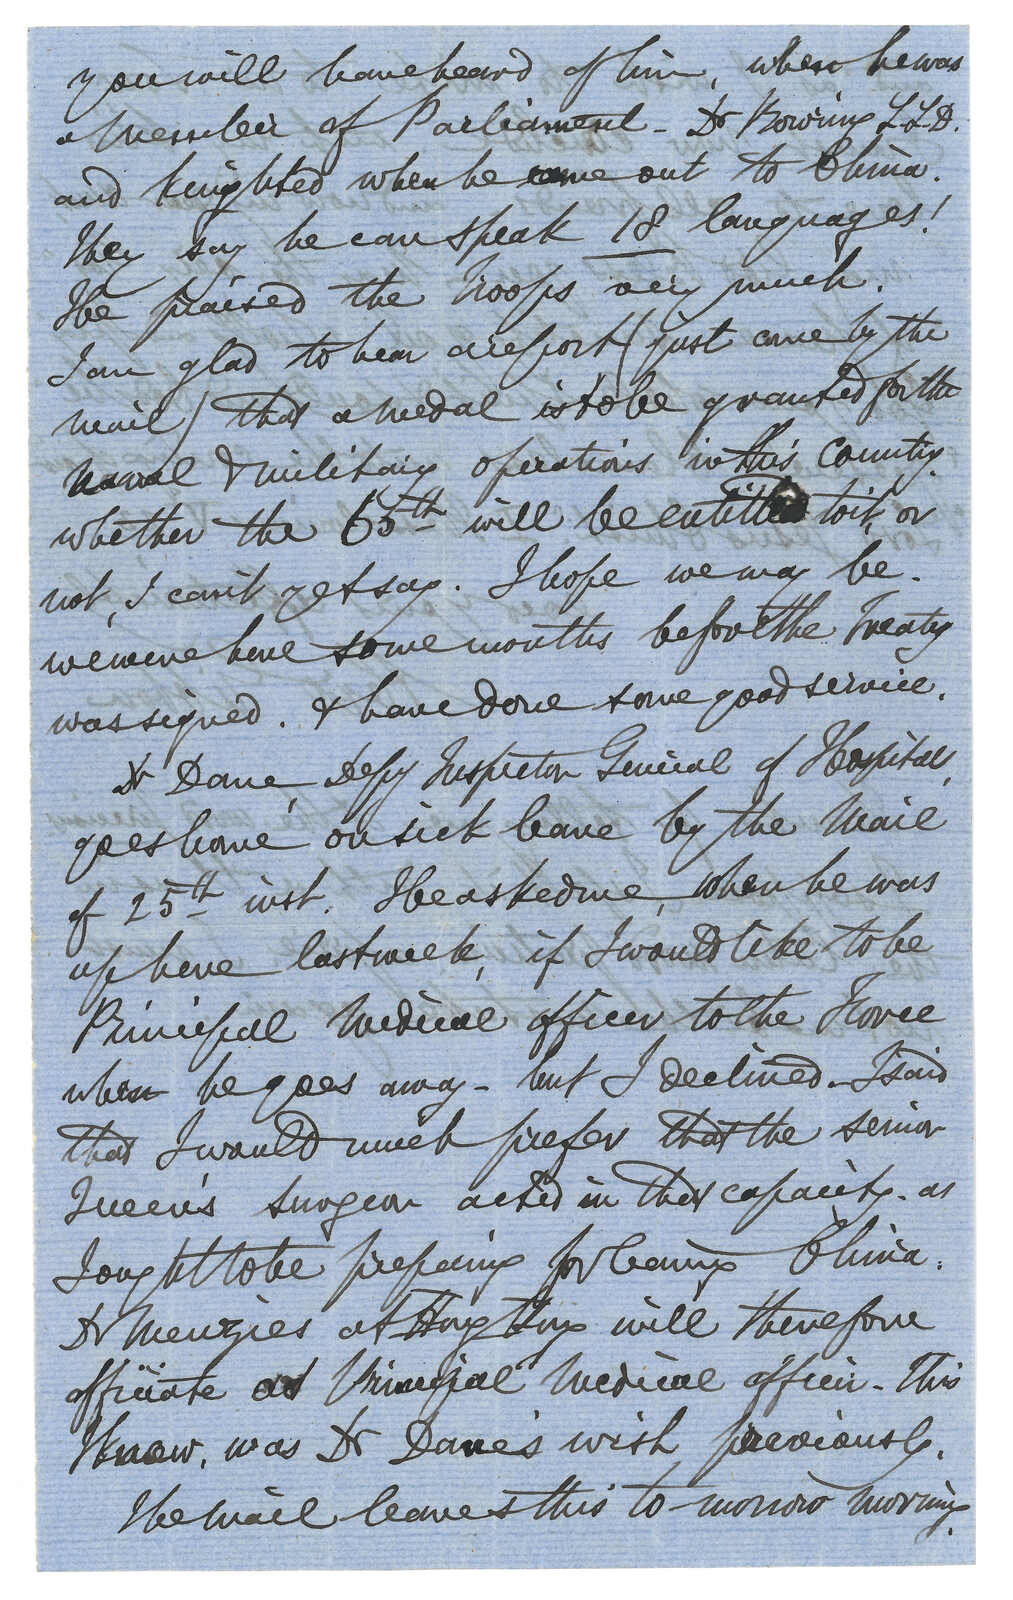 you will have heard of him, when he was
a Member of Parliament - Dr Bowring LLD.
and knighted when he came out to China.
They say he can speak 18 languages!
He praised the Troops very much.
I am glad to hear a report (just come by the
mail) that a medal is to be granted for the
naval & military operations in this country.
whether the 65th will be entitled to it, or
not, I can't yet say. I hope we may be.
we were here some months before the Treaty
was signed. & have done some good service.
Dr Dane, Depy Inspector General of Hospitals,
goes home on sick leave by the Mail
of 25th inst. He asked me, when he was
up here last week, if I would like to be
Principal Medical officer to the Force
when he goes away - but I declined. I said
that I would much prefer that the senior
Queen's surgeon acted in that capacity. as
I ought to be preparing for leaving China.
Dr Menzies at Hong Kong will therefore
officiate as Principal Medical officer - This
I know, was Dr Dane's wish previously.
The Mail leaves this to-morrow morning.